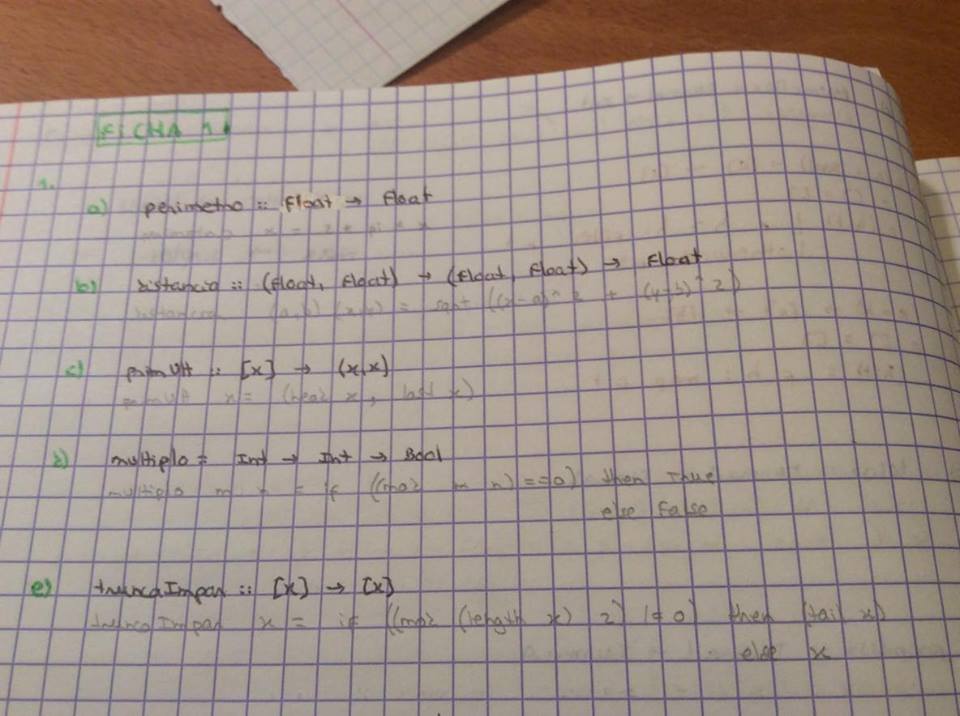 FICHA 1
1.
a) perimetro :: Float → Float
perimetro x = 2 * pi * x
b) distancia :: (Float, Float) → (Float, Float) → Float
distancia (a,b) (x,y) = sqrt ((x-a)^2 + (y-b)^2)
c) primUlt :: [x] → (x,x)
primUlt x = (head x, last x)
d) multiplo = Int → Int → Bool
multiplo m n = if ((mod m n) == 0) then True
else False
e) truncaImpar :: [x] → [x]
truncaImpar x = if ((mod (length x) 2) /= 0) then (tail x)
else x